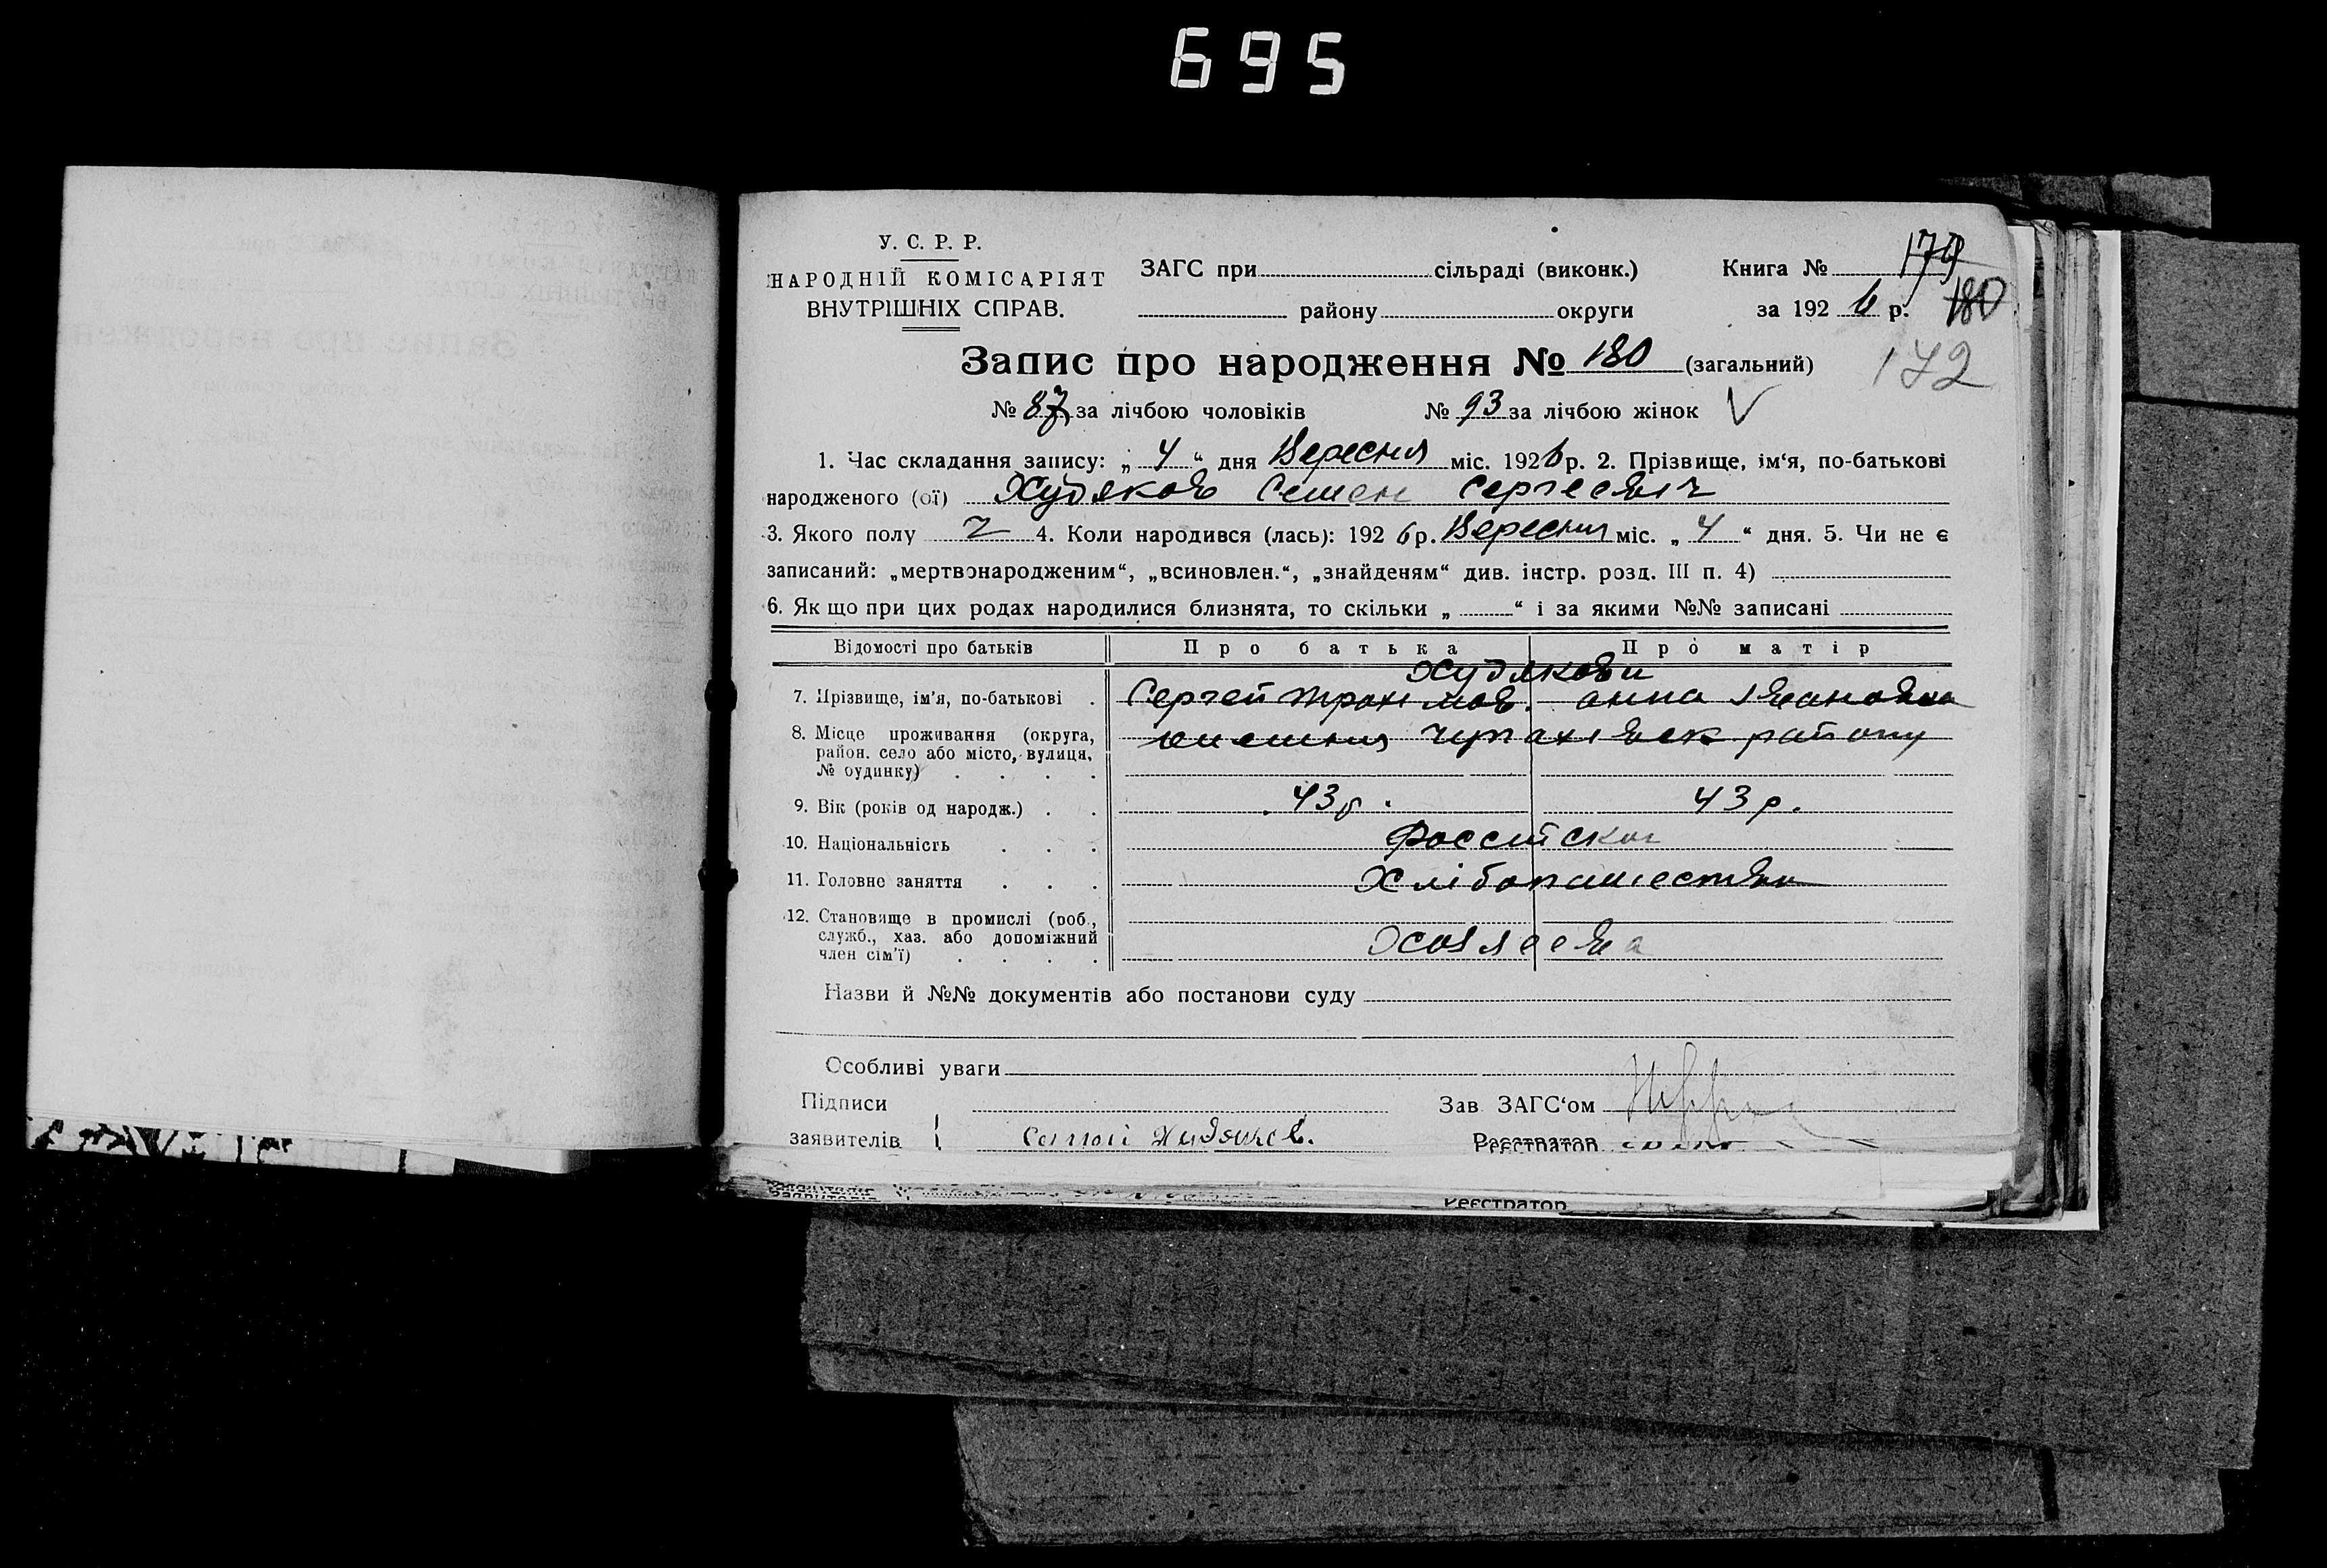 695
У. С. Р. Р.
НАРОДНІЙ КОМІСАРІЯТ
ВНУТРІШНІХ СПРАВ.
ЗАГС при сільраді (виконк.)
району округи
Книга № 179
за 1926 р. 180
172
Запис про народження № 180 (загальний)
№ 87 за лічбою чоловіків № 93 за лічбою жінок
1. Час складання запису: „4“ дня Вересня міс. 1926 р. 2. Прізвище, ім‘я, по-батькові
народженого (ої) Худяков Семен Сергеевич
3. Якого полу ч 4. Коли народився (лась): 1926 р. Вересня міс. „4“ дня. 5. Чи не є
записаний: „мертвонародженим“, „всиновлен.“, „знайденям“ див. інстр. розд. III п. 4)
6. Якщо при цих родах народилися близнята, то скільки „ “ і за якими №№ записані
Відомості про батьків Про батька Про матір
Худякови
7. Прізвище, ім'я, по-батькові . Сергей Трохимов. Анна Ивановна
8. Місце проживання (округа, район. село або місто, вулиця, № будинку) . . . . району
9. Вік (років од народж.) . . 43 р. 43 р.
10. Національність . . . Российская
11. Головне заняття . . . Хлібопашество
12. Становище в промислі (роб., служб., хаз. або допоміжний член сім'ї) . . . .
Назви й №№ документів або постанови суду
Особливі уваги
Підписи
заявителів Худяков.
Зав ЗАГС‘ом
Реєстратор
Реєстратор